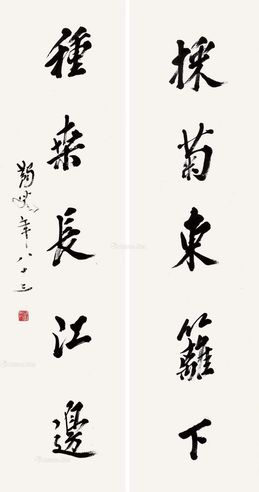 採菊東籬下
種桑長江邊
蠲叟年八十三